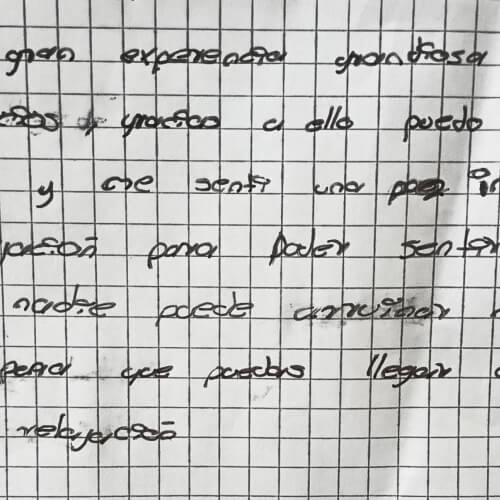 gran experencia grandiosa
y gracias a ello puedo
y me sentí una paz
para poder sentir
nadie puede arruinar
que puedas llegar
relajación